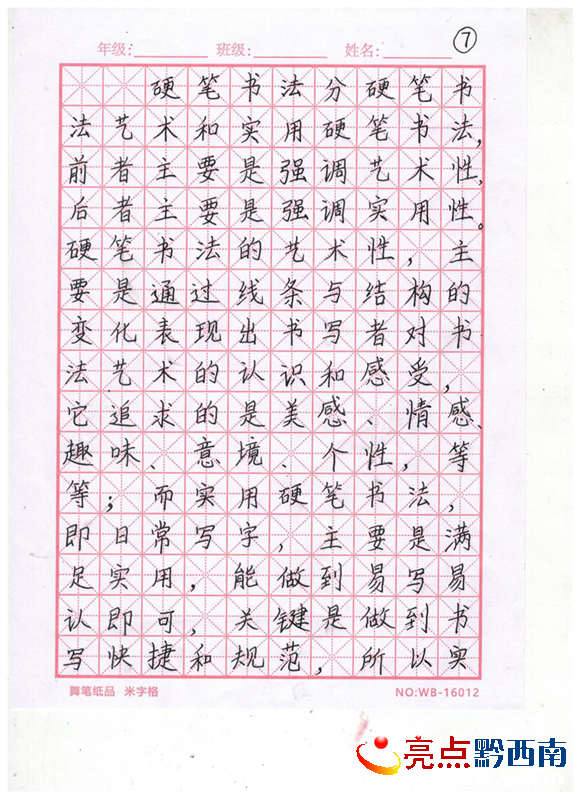 ⑦
年级: 班级: 姓名:
硬笔书法分硬笔书
法艺术和实用硬笔书法,
前者主要是强调艺术性,
后者主要是强调实用性。
硬笔书法的艺术性,主
要是通过线条与结构的
变化表现出书写者对书
法艺术的认识和感受,
它追求的是美感、情感、
趣味、意境、个性,等
等;而实用硬笔书法,
即日常写字,主要是满
足实用,能做到易写易
认即可,关键是做到书
写快捷和规范,所以实
舞笔纸品 米字格 NO:WB-16012
亮点黔西南